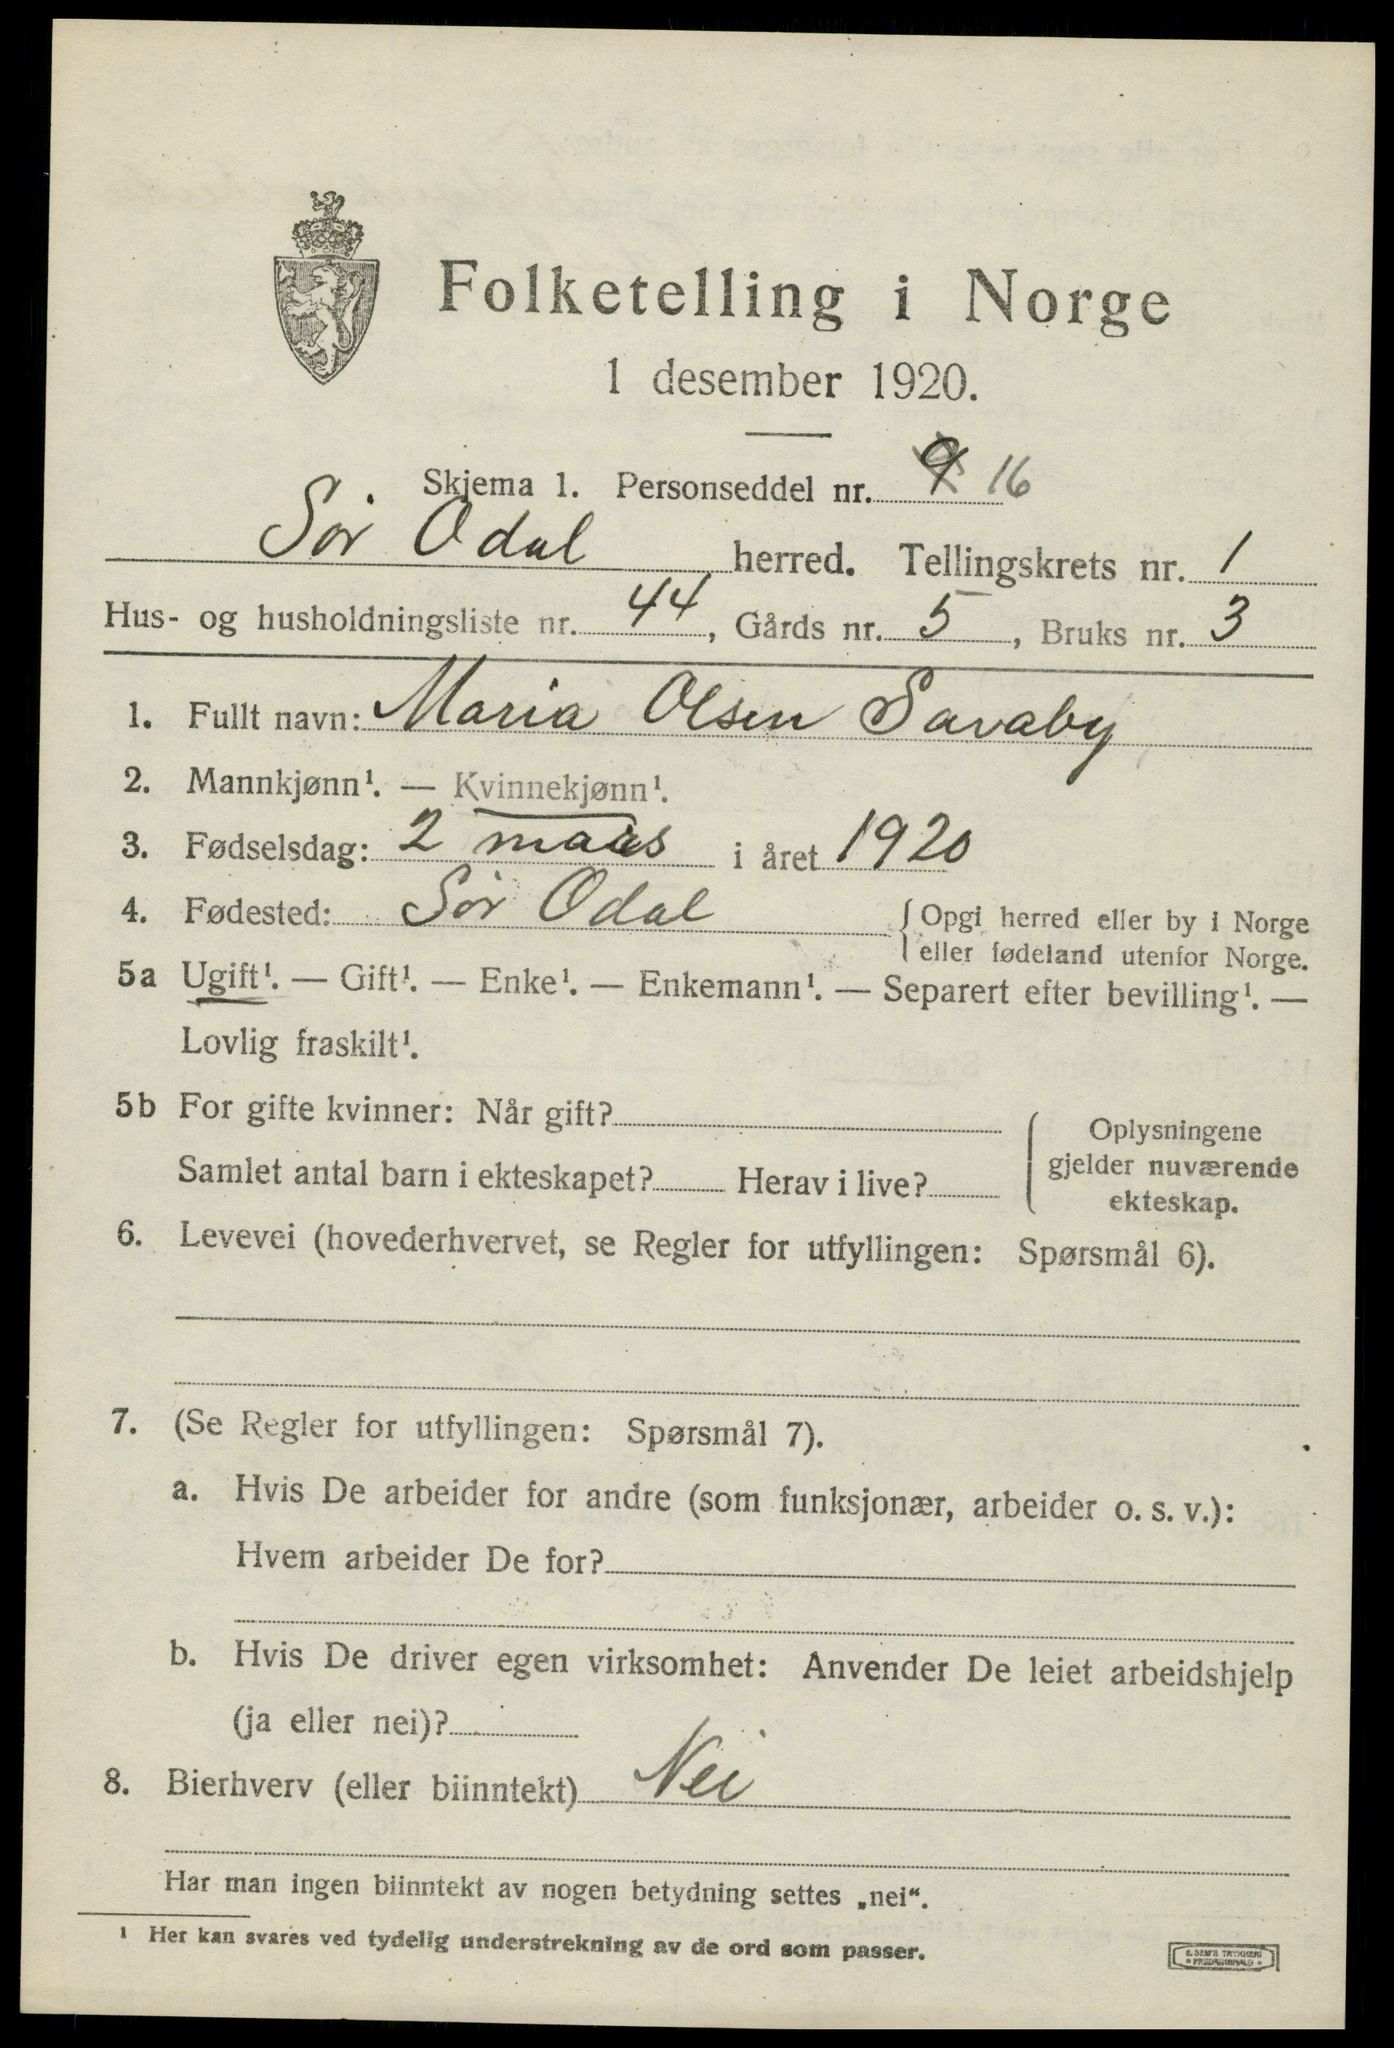 Folketelling i Norge
1 desember 1920.
Skjema 1. Personseddel nr. 9 16
Sør Odal herred. Tellingskrets nr. 1
Hus- og husholdningsliste nr. 44, Gårds nr. 5, Bruks nr. 3
1. Fullt navn: Maria Olsen Saraby
2. Mannkjønn¹. — Kvinnekjønn¹.
3. Fødselsdag: 2 mars i året 1920
4. Fødested: Sør Odal { Opgi herred eller by i Norge
eller fødeland utenfor Norge.
5a Ugift¹. — Gift¹. — Enke¹. — Enkemann¹. — Separert efter bevilling¹. —
Lovlig fraskilt¹.
5b For gifte kvinner: Når gift?
Samlet antal barn i ekteskapet? Herav i live?
Oplysningene
gjelder nuværende
ekteskap.
6. Levevei (hovederhvervet, se Regler for utfyllingen: Spørsmål 6).
7. (Se Regler for utfyllingen: Spørsmål 7).
a. Hvis De arbeider for andre (som funksjonær, arbeider o. s. v.):
Hvem arbeider De for?
b. Hvis De driver egen virksomhet: Anvender De leiet arbeidshjelp
(ja eller nei)?
8. Bierhverv (eller biinntekt) Nei
Har man ingen biinntekt av nogen betydning settes „nei“.
¹ Her kan svares ved tydelig understrekning av de ord som passer.
E. SEM'S TRYKKERI
FREDRIKSHALD